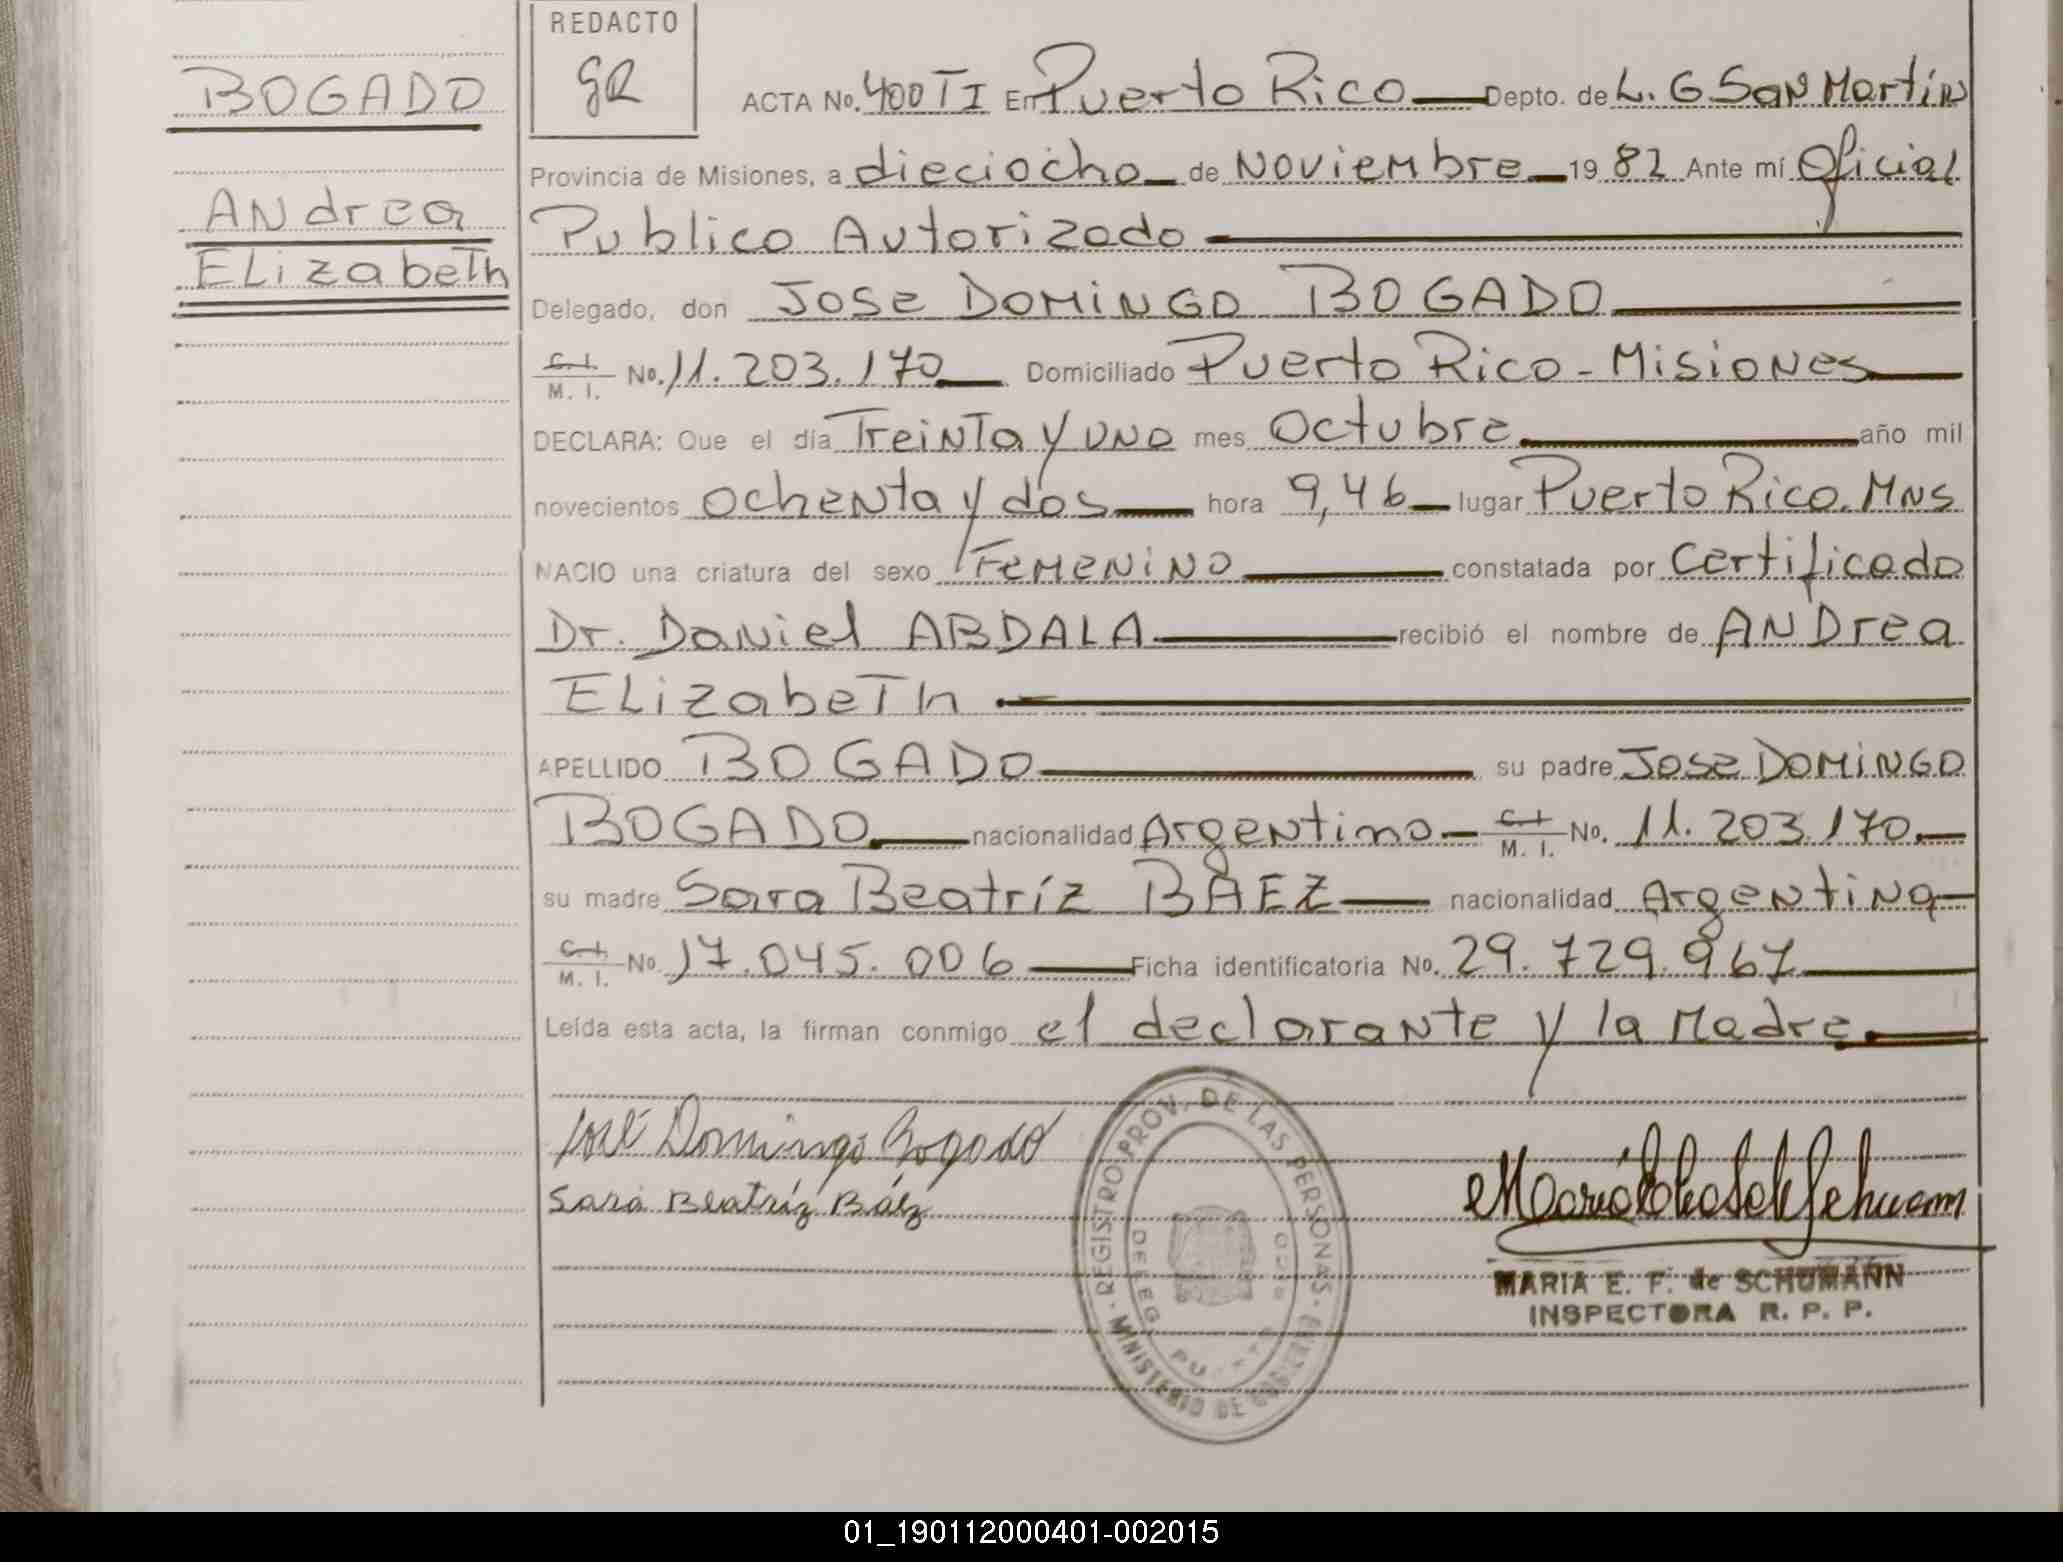 BOGADO
Andrea
Elizabeth
REDACTO
gR
ACTA No. 400 TI En Puerto Rico Depto. de L. G San Martín
Provincia de Misiones, a dieciocho de Noviembre 19 82 Ante mí Oficial
Publico Autorizado
Delegado, don JOSe DOMiNGO BOGADO
C. I. M. I. No. 11.203.170 Domiciliado Puerto Rico - Misiones
DECLARA: Que el día Treinta y uno mes Octubre año mil
novecientos ochenta y dos hora 9,46 lugar Puerto Rico. Mns
NACIO una criatura del sexo Femenino constatada por Certificado
Dr. Daniel ABDALA recibió el nombre de ANDrea
ELizabeTh
APELLIDO BOGADO su padre Jose DOMiNGO
BOGADO nacionalidad Argentino C. I. M. I. No. 11.203.170.
su madre Sara Beatríz BAEZ nacionalidad Argentina
C. I. M. I. No 17.045.006 Ficha identificatoria No. 29.729.967
Leída esta acta, la firman conmigo el declarante y la Madre.
José Domingo Bogado
Sara Beatríz Báez
REGISTRO PROV. DE LAS PERSONAS · MINISTERIO DE GOBIERNO
MARIA E. F. de SCHUMANN
INSPECTORA R. P. P.
01_190112000401-002015